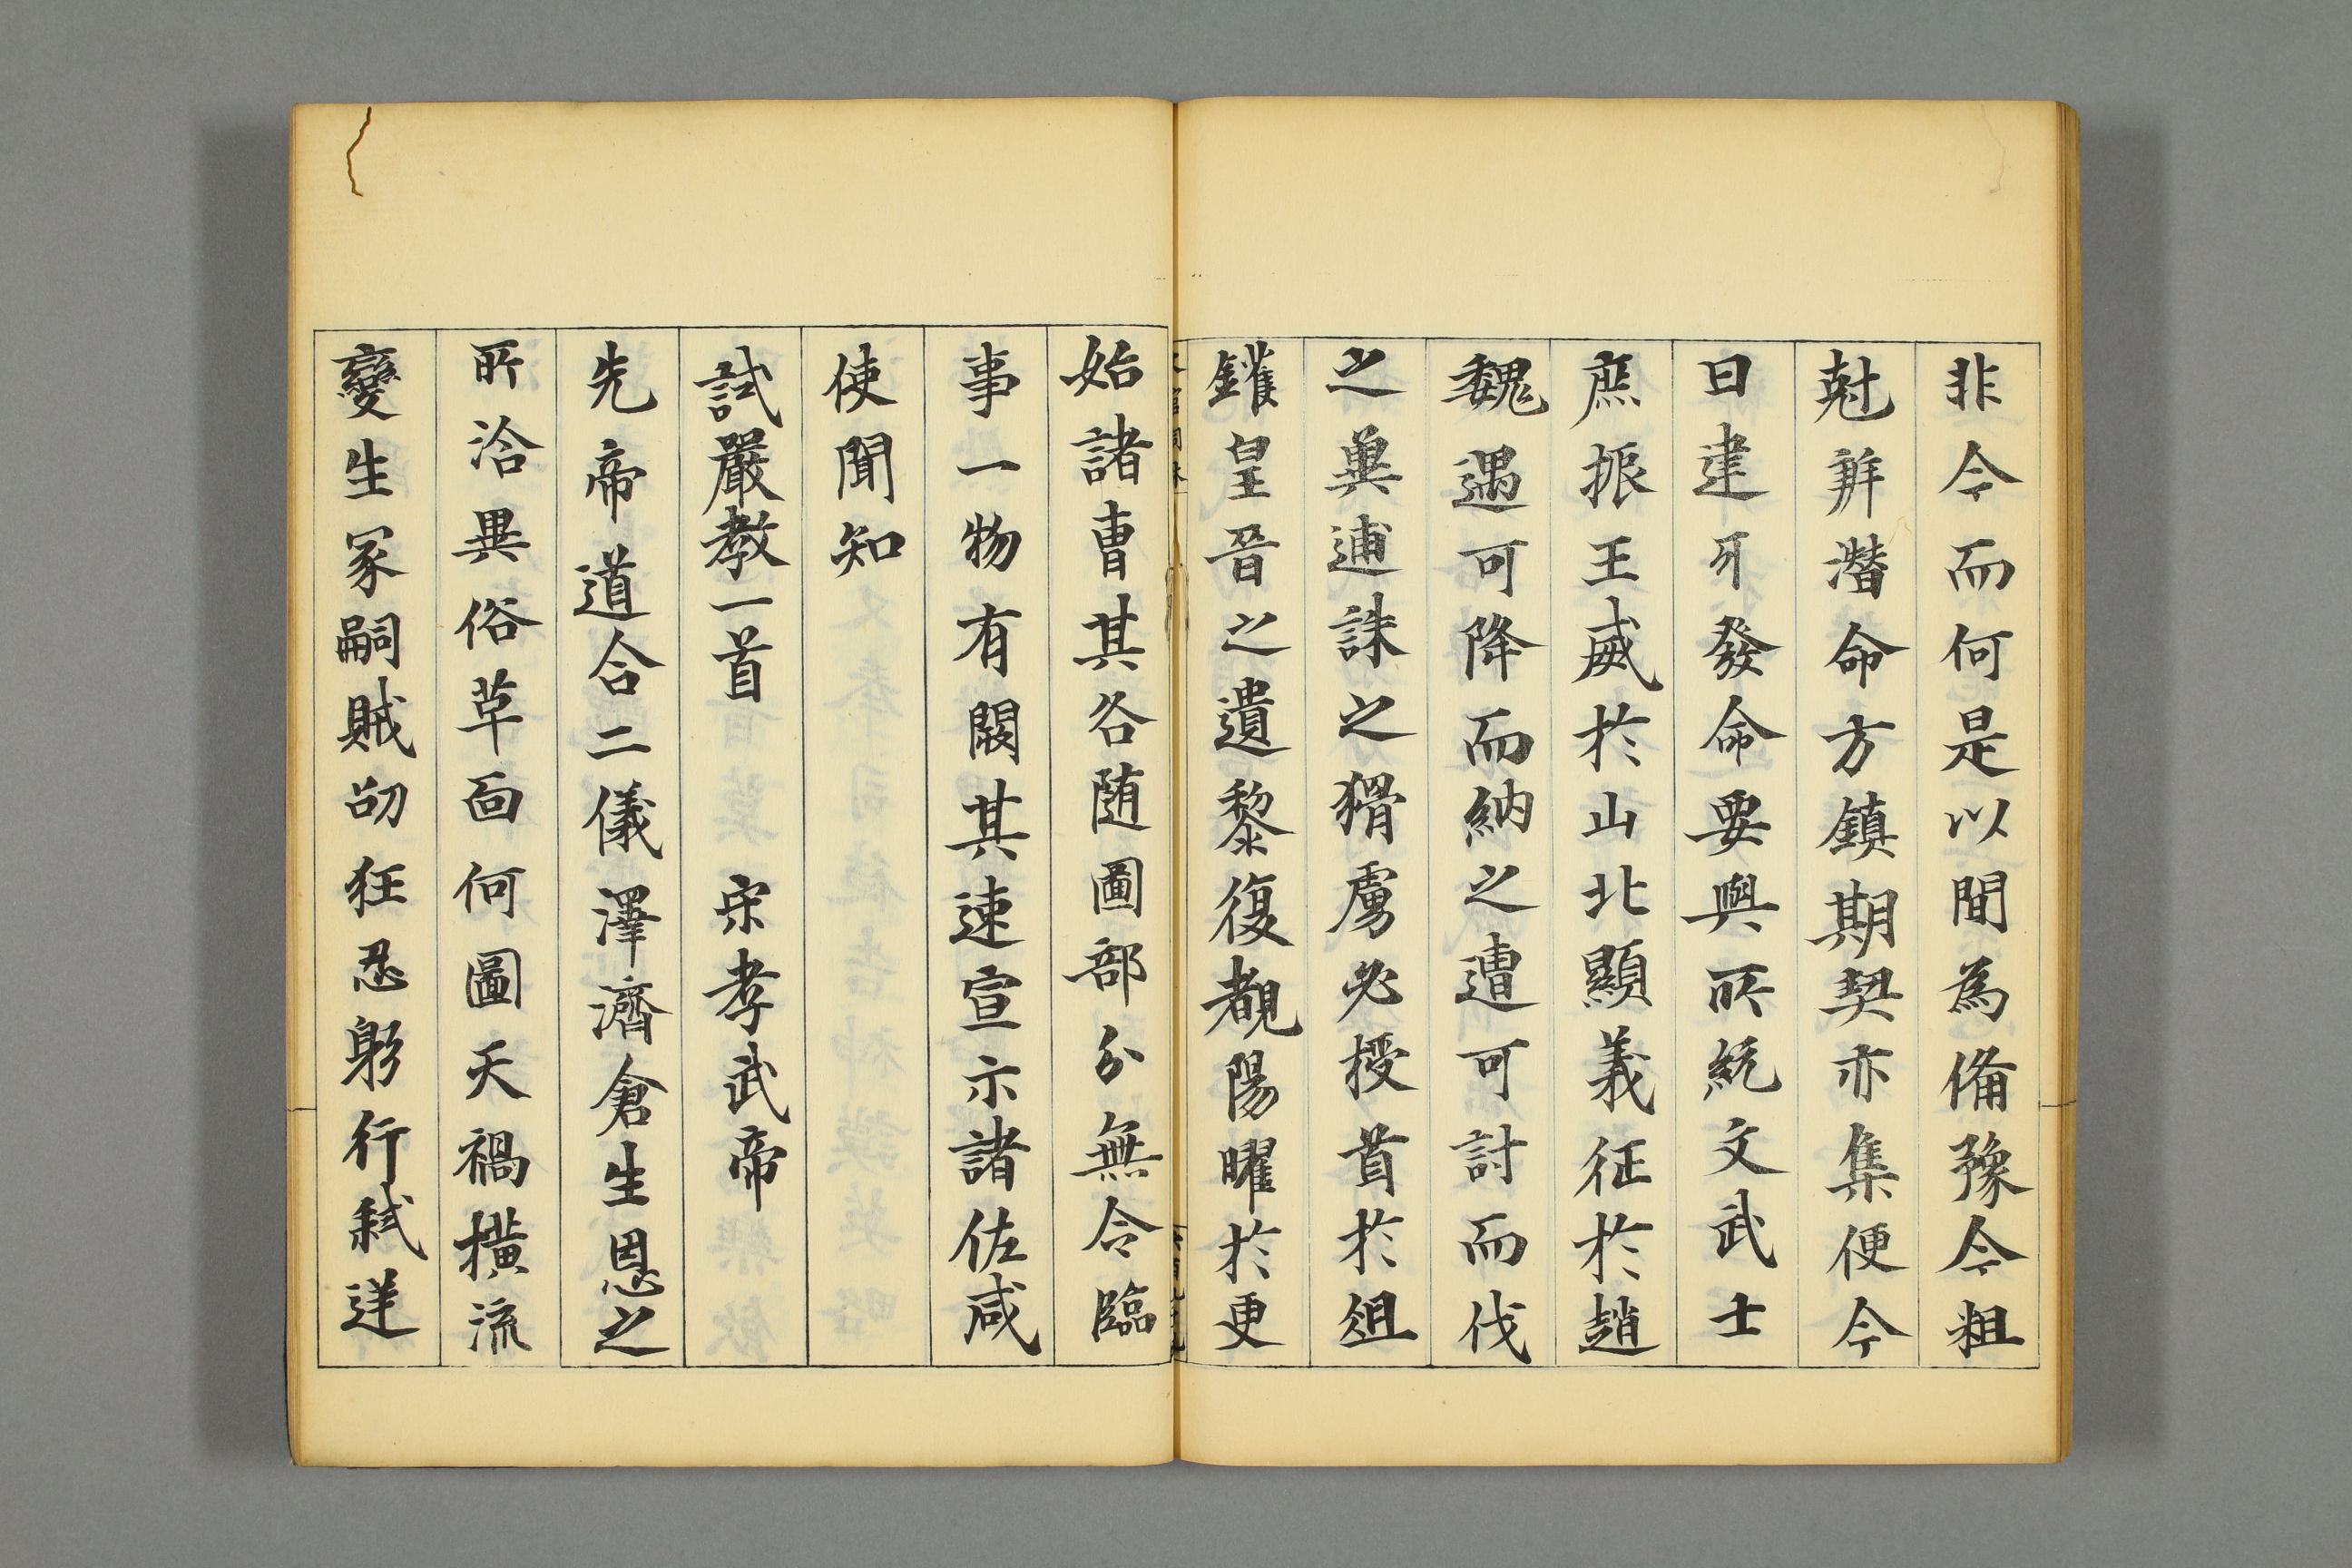 非今而何是以間為備豫今粗
尅辦潛命方鎮期契亦集便今
日建牙發命要與所統文武士
庶振王威於山北顯義征於趙
魏遇可降而納之遭可討而伐
之莫逋誅之猾虜必授首於俎
鑊皇晉之遺黎復覩陽曜於更
始諸曹其各随圖部分無令臨
事一物有闕其速宣示諸佐咸
使聞知
試嚴教一首 宋孝武帝
先帝道合二儀澤濟倉生恩之
所洽異俗革面何圖天禍橫流
變生冢嗣賊劭狂忍躬行弒逆